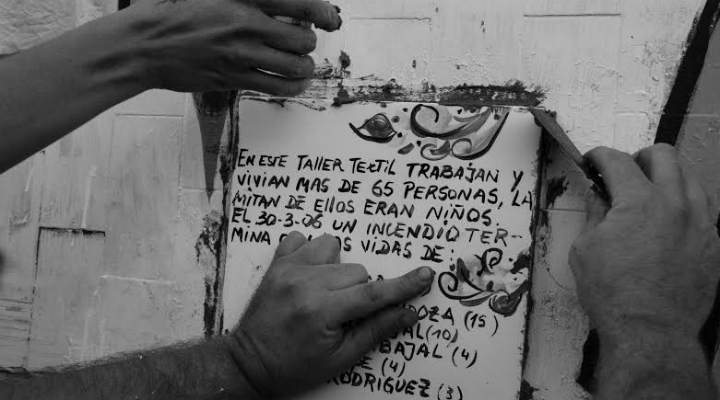 EN ESTE TALLER TEXTIL TRABAJAN Y
VIVIAN MAS DE 65 PERSONAS, LA
MITAN DE ELLOS ERAN NIÑOS.
EL 30-3-06 UN INCENDIO TER-
MINA VIDAS DE:
(15)
(10)
(4)
(4)
RODRIGUEZ (3)